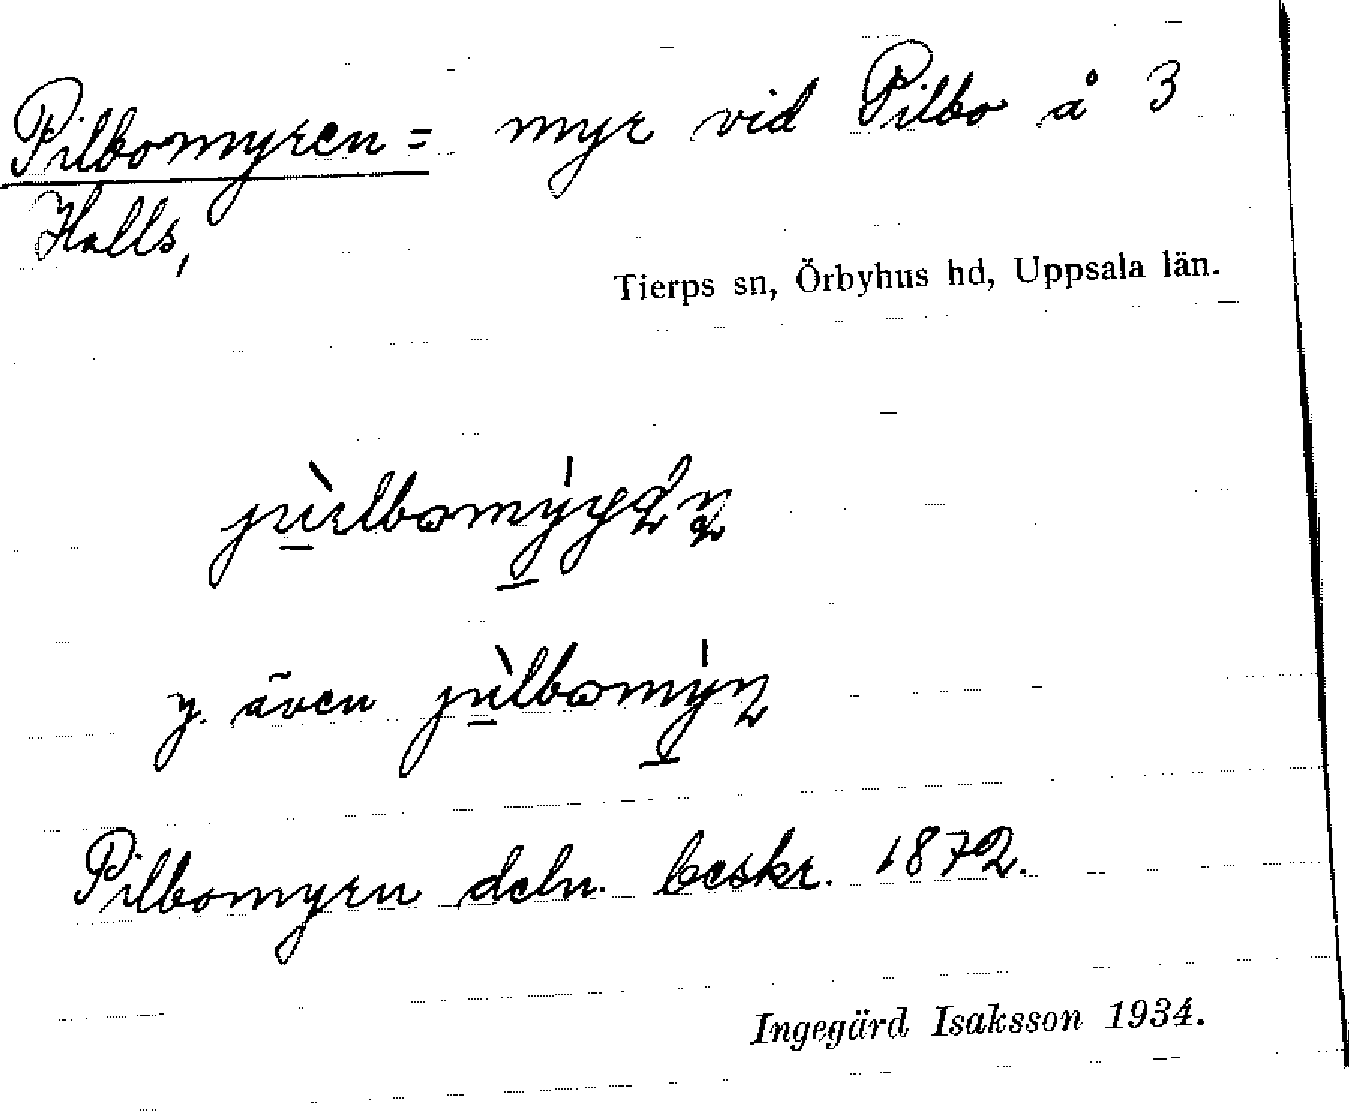 Pilbomyren = myr vid Pilbo å 3
Halls,
Tierps sn, Örbyhus hd, Uppsala län.
y. även
Pilbomyrn deln. beskr. 1872.
Ingegärd Isaksson 1934.